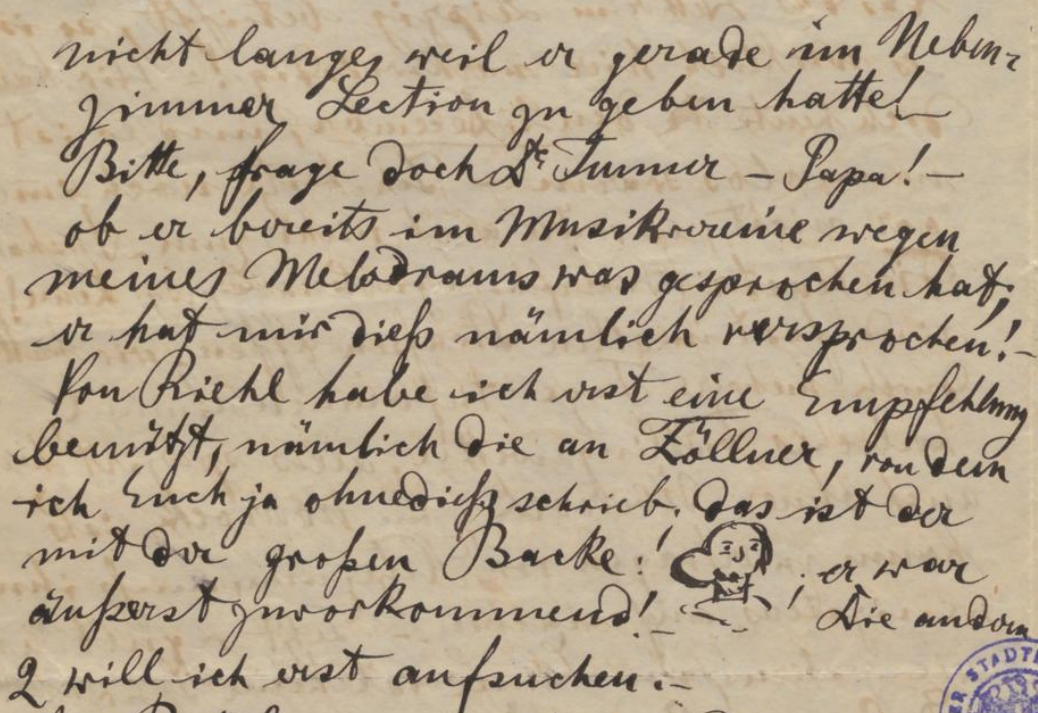 nicht lange, weil er gerade im Neben-
zimmer Lection zu geben hatte!
Bitte, frage doch Dr Tunner - Papa! -
ob er bereits im Musikvereine wegen
meines Melodrams was gesprochen hat,
er hat mir dieß nämlich versprochen! -
Von Riehl habe ich erst eine Empfehlung
benützt, nämlich die an Zöllner, von dem
ich Euch ja ohnedieß schrieb. Das ist der
mit der großen Backe! ; er war
äußerst zuvorkommend! Die andern
2 will ich erst aufsuchen. -
ER STADT